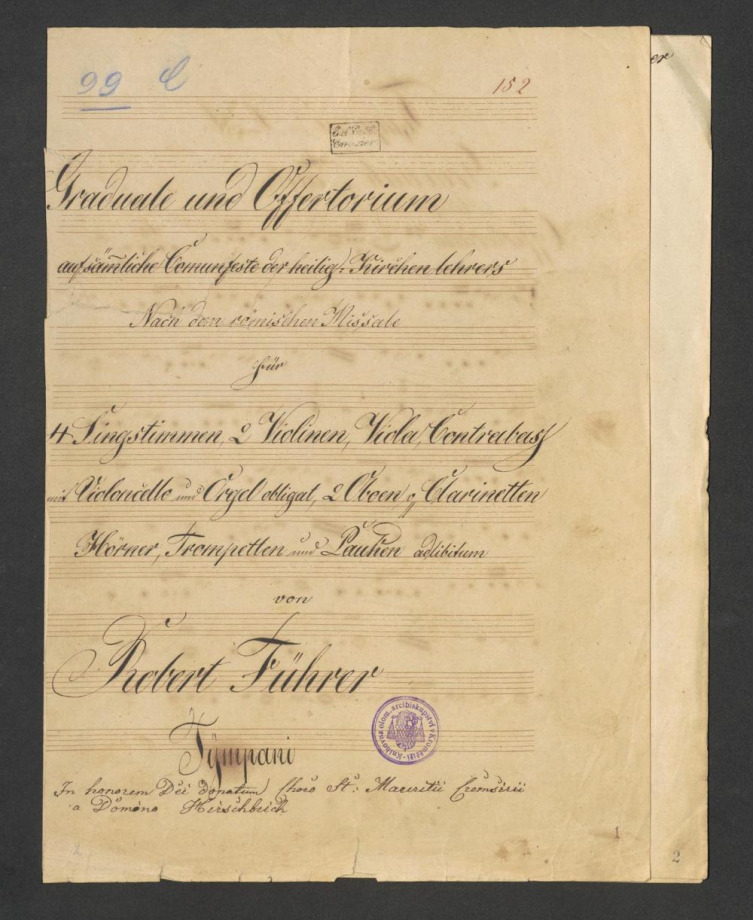 99 C
152
Graduale und Offertorium
auf säm̅tliche Comunfeste der heilig. Kirchenlehrers
Nach dem römischen Missale
für
4 Singstimmen, 2 Violinen, Viola, Contrabass
mit Violoncello und Orgel obligat, 2 Oboen Clarinetten
Hörner, Trompetten und Pauken adlibitum
von
Robert Führer
Tympani
Knihovna olom. arcibiskupství v Kroměříži
In honorem Dei donatum Choro St: Mauritii Cremsirii
a Domino Hirschbeich
1
2